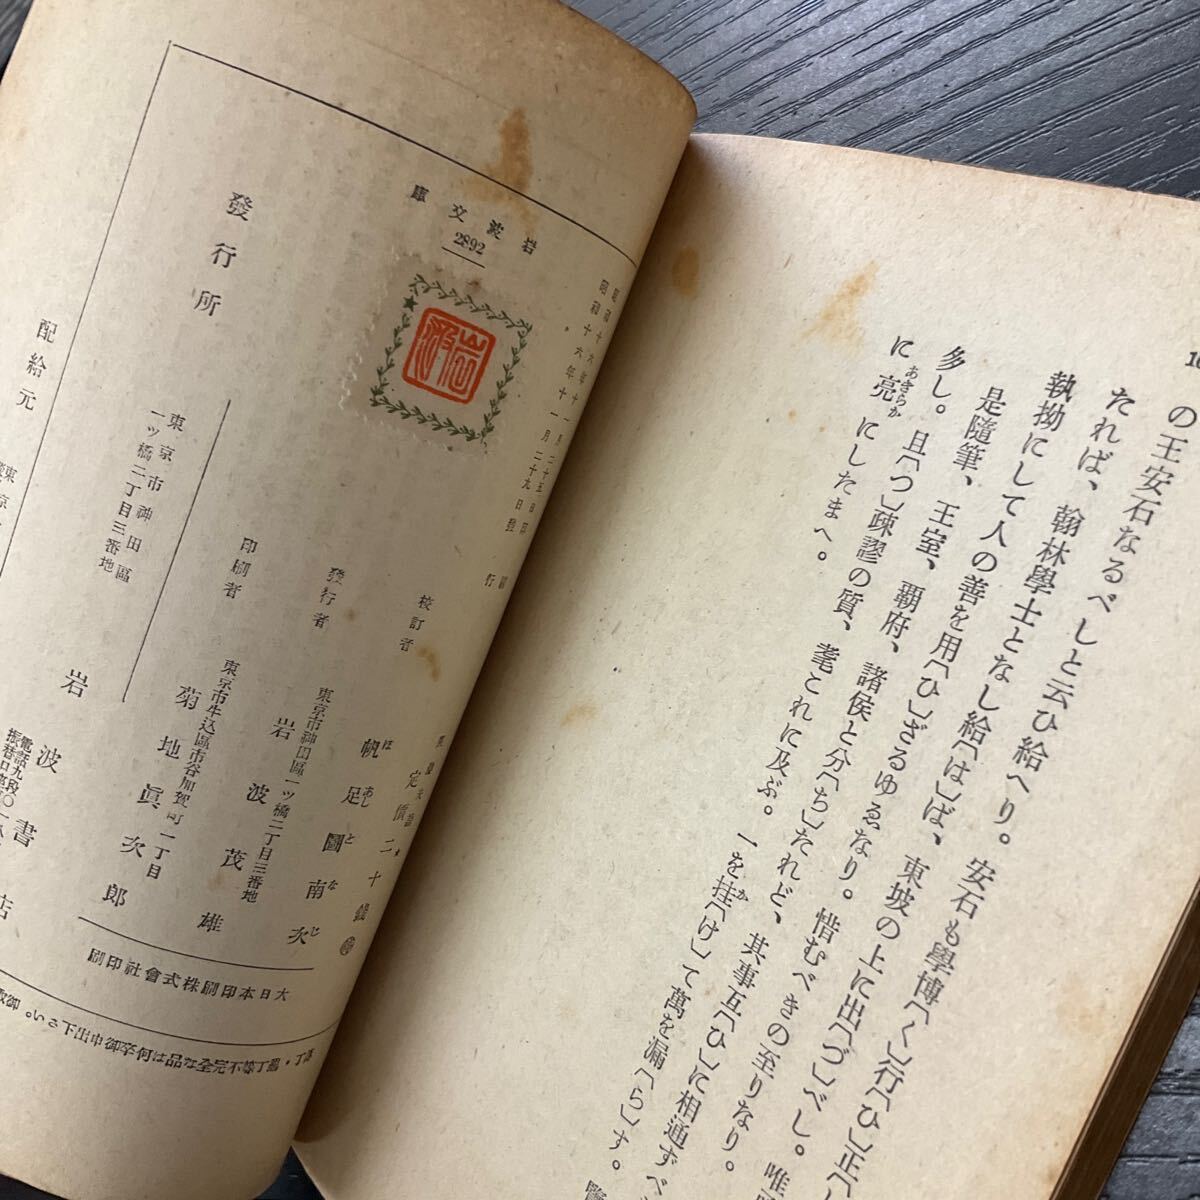 の王安石なるべしと云ひ給へり。安石も學博「く」行「ひ」正「し
たれば、翰林學士となし給「は」ば、東坡の上に出「づ」べし。唯
執拗にして人の善を用「ひ」ざるゆゑなり。惜むべきの至りなり。
是隨筆、王室、覇府、諸侯と分「ち」たれど、其事互「ひ」に相通ずべ
多し。且「つ」疎謬の質、耄これに及ぶ。一を挂「け」て萬を漏「ら」す。
に亮にしたまへ。
あきらか
か
岩波文庫
2892
昭和十六年十一月二十五日印刷
昭和十六年十一月二十九日發行
定價二十錢
校訂者
帆足圖南次
ほあしとなじ
發行者
東京市神田區一ッ橋二丁目三番地
岩波茂雄
印刷者
東京市牛込區市谷加賀町一丁目
菊地眞次郎
大日本印刷株式會社印刷
發行所
東京市神田區
一ッ橋二丁目三番地
岩波書店
配給元